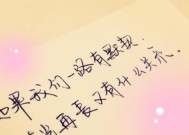 如果我们一路有默契
再长又有什么关系。